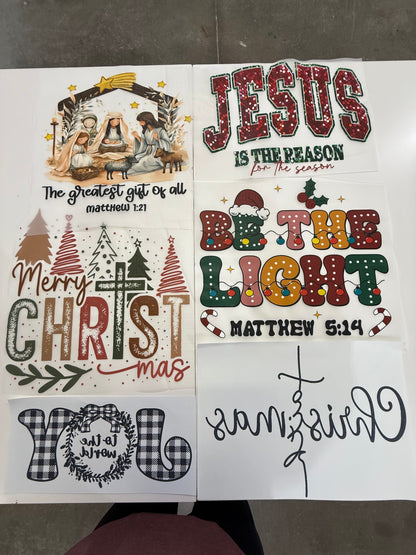 The greatest gift of all
Matthew 1:21
JESUS
IS THE REASON
for the season
Merry
CHRIST
mas
BE THE
LIGHT
MATTHEW 5:14
JOY
to the
world
Christmas